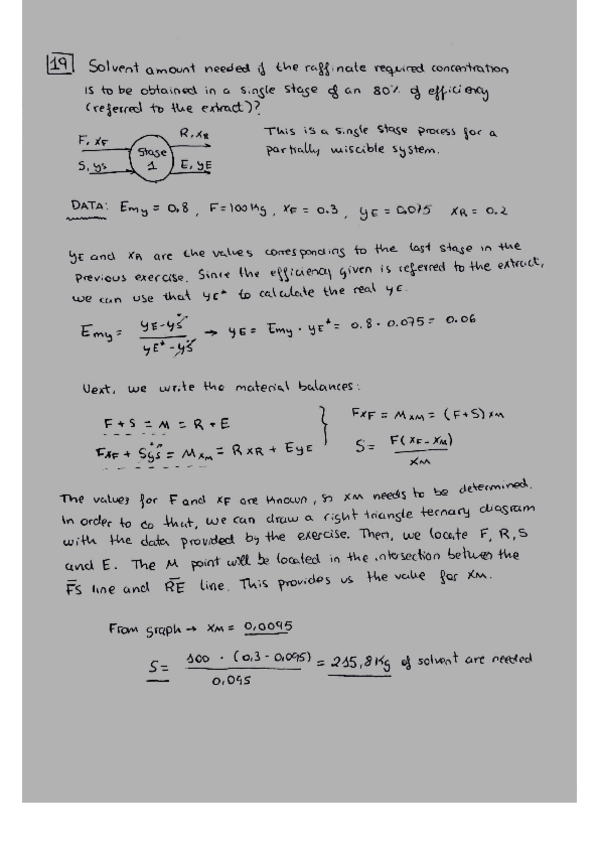 19 Solvent amount needed if the raffinate required concentration
is to be obtained in a single stage of an 80% of efficiency
(referred to the extract)?
F, xF
R, xR
Stage
1
S, ys
E, yE
This is a single stage process for a
partially miscible system.
DATA: Emy = 0.8, F = 100 Kg, xF = 0.3, yE = 0,075 xR = 0.2
yE and xR are the values corresponding to the last stage in the
previous exercise. Since the efficiency given is referred to the extract,
we can use that yE* to calculate the real yE.
Emy = (yE - ys) / (yE* - ys) → yE = Emy · yE* = 0.8 · 0.075 = 0.06
Next, we write the material balances:
F + S = M = R + E
FxF + Sys = MxM = RxR + EyE
FxF = MxM = (F+S) xM
S = F(xF - xM) / xM
The values for F and xF are known, so xM needs to be determined.
In order to do that, we can draw a right triangle ternary diagram
with the data provided by the exercise. Then, we locate F, R, S
and E. The M point will be located in the intersection between the
FS line and RE line. This provides us the value for xM.
From graph → xM = 0,0095
S = 100 · (0,3 - 0,095) / 0,095 = 215,8 Kg of solvent are needed